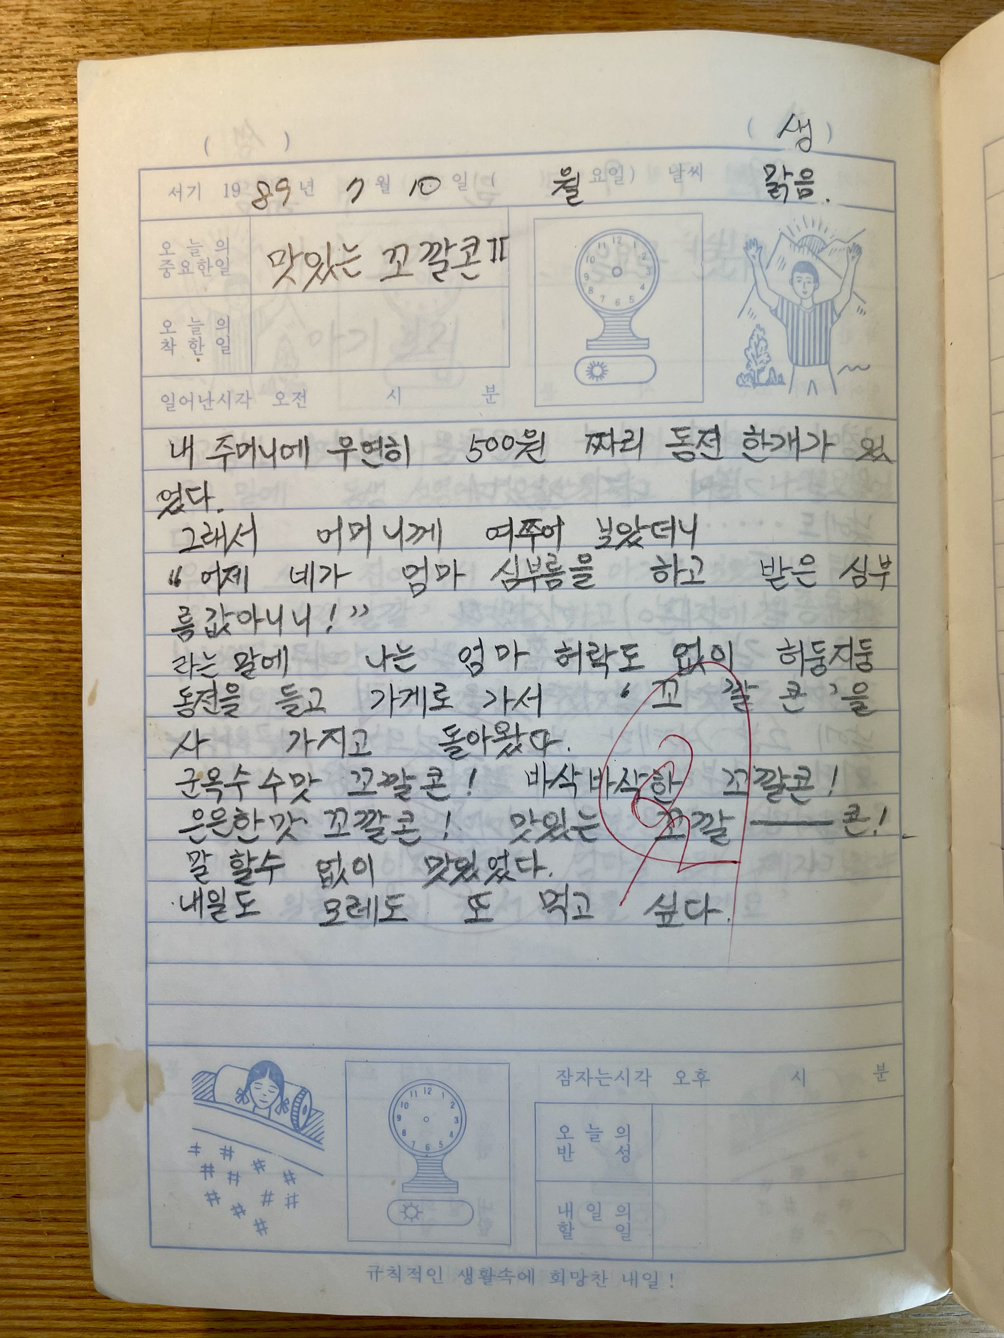 ( ) ( 생 )
서기 1989년 7월 10일 (월요일) 날씨 맑음.
오늘의 중요한일 맛있는 꼬깔콘Ⅱ
오늘의 착한일
일어난시각 오전 시 분
내 주머니에 우연히 500원 짜리 동전 한개가 있
었다.
그래서 어머니께 여쭈어 보았더니
“어제 네가 엄마 심부름을 하고 받은 심부
름값아니니!”
라는 말에 나는 엄마 허락도 없이 허둥지둥
동전을 들고 가게로 가서 ‘꼬깔콘’을
사 가지고 돌아왔다.
군옥수수맛 꼬깔콘! 바삭바삭한 꼬깔콘!
은은한맛 꼬깔콘! 맛있는 꼬깔──콘!
말 할수 없이 맛있었다.
내일도 모레도 또 먹고 싶다.
잠자는시각 오후 시 분
오늘의 반성
내일의 할일
규칙적인 생활속에 희망찬 내일!